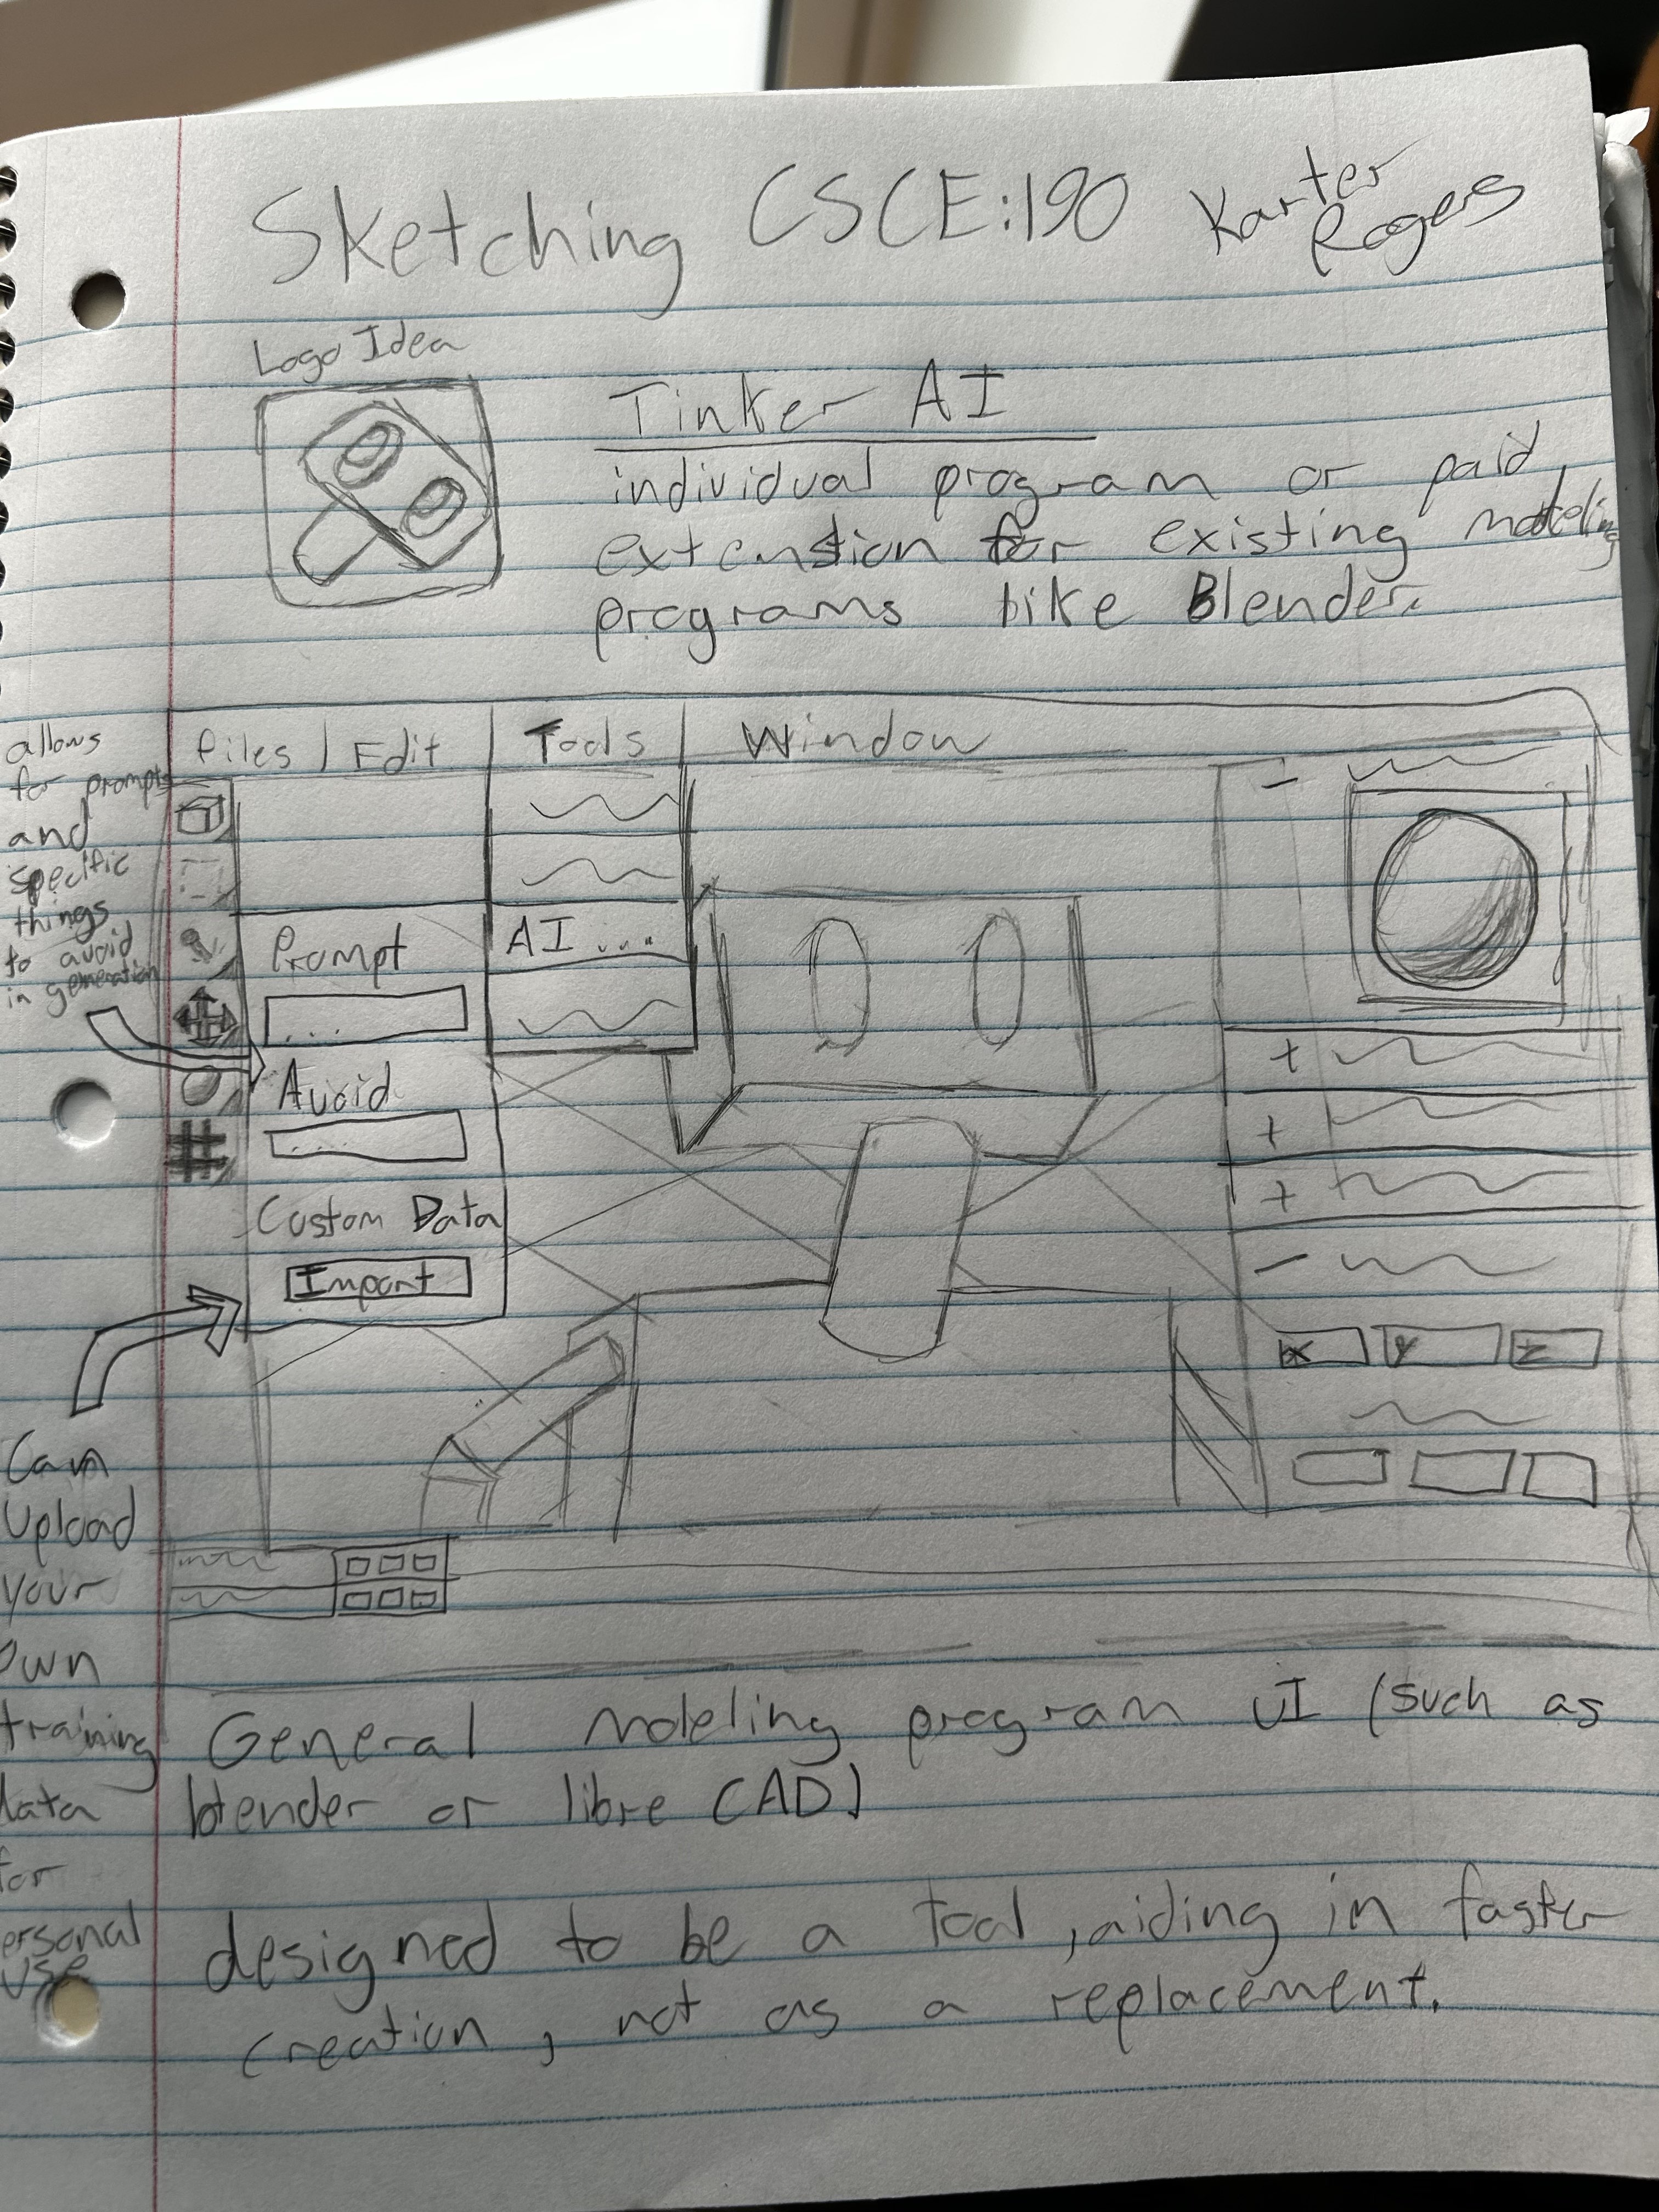 Sketching CSCE:190 Karter
Rogers
Logo Idea
Tinker AI
individual program or paid
extension for existing modeling
programs like Blender.
allows
for prompts
and
specific
things
to avoid
in generation
Files | Edit
Tools
Window
AI ...
Prompt
...
Avoid
...
Custom Data
Import
+
+
+
X Y Z
Can
Upload
your
own
training
data
for
personal
use
General modeling program UI (such as
blender or libre CAD)
designed to be a tool, aiding in faster
creation, not as a replacement.